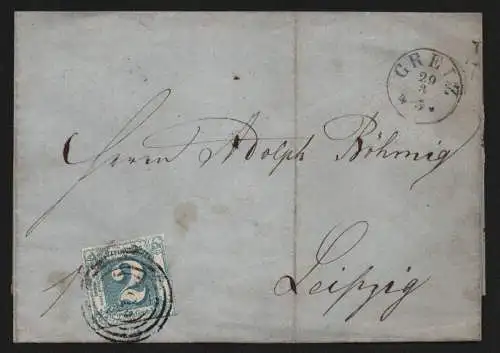 GREIZ
29
3
Herrn Adolph Böhmig
2
Leipzig